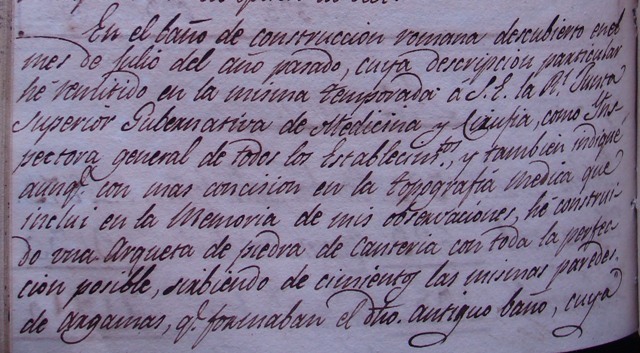 En el baño de construccion romana descubierto en el
mes de Julio del año pasado, cuya descripcion particular
hé remitido en la misma temporada á S.E. la Rl. Junta
Superior Gubernativa de Medicina y Cirugia, como Ins-
pectora general de todos los Establecintos, y tambien indiqué
aunqe. con mas concision en la topografía Medica que
inclui en la Memoria de mis observaciones, hé construi-
do una Arqueta de piedra de Canteria con toda la perfec-
cion posible, sirbiendo de cimientos las mismas paredes
de Argamas, qe. formaban el dho. antiguo baño, cuya